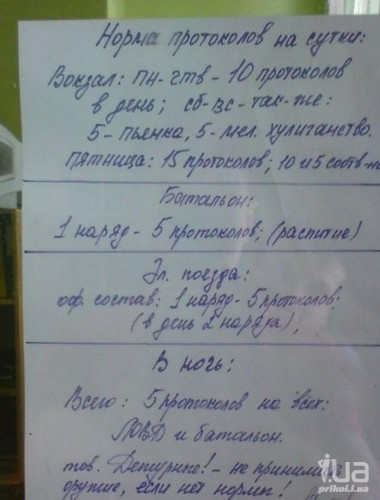 Норма протоколов на сутки:
Вокзал: пн-чтв - 10 протоколов
в день; сб-вс - так-же:
5 - пьянка, 5 - мел. хулиганство.
Пятница: 15 протоколов; 10 и 5 соотв-но
Батальон:
1 наряд - 5 протоколов; (распитие)
Эл. поезда:
оф. состав: 1 наряд - 5 протоколов;
(в день 2 наряда);
В ночь:
Всего: 5 протоколов на всех:
ЛОВД и батальон.
тов. Дежурные! - не принимать
оружие, если нет нормы!
i.ua
prikol.i.ua